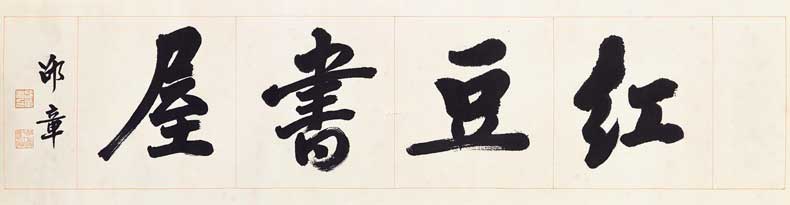 紅豆書屋
邵章